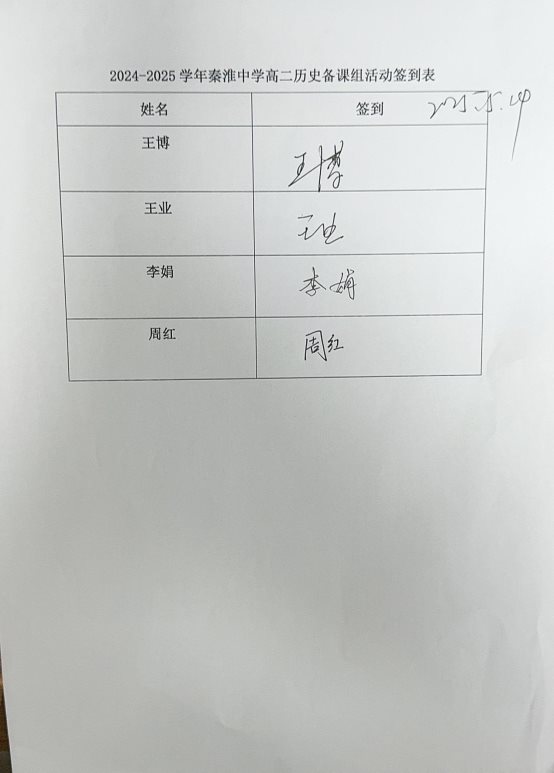 2024-2025 学年秦淮中学高二历史备课组活动签到表
姓名 签到
王博 王博
王业 王业
李娟 李娟
周红 周红